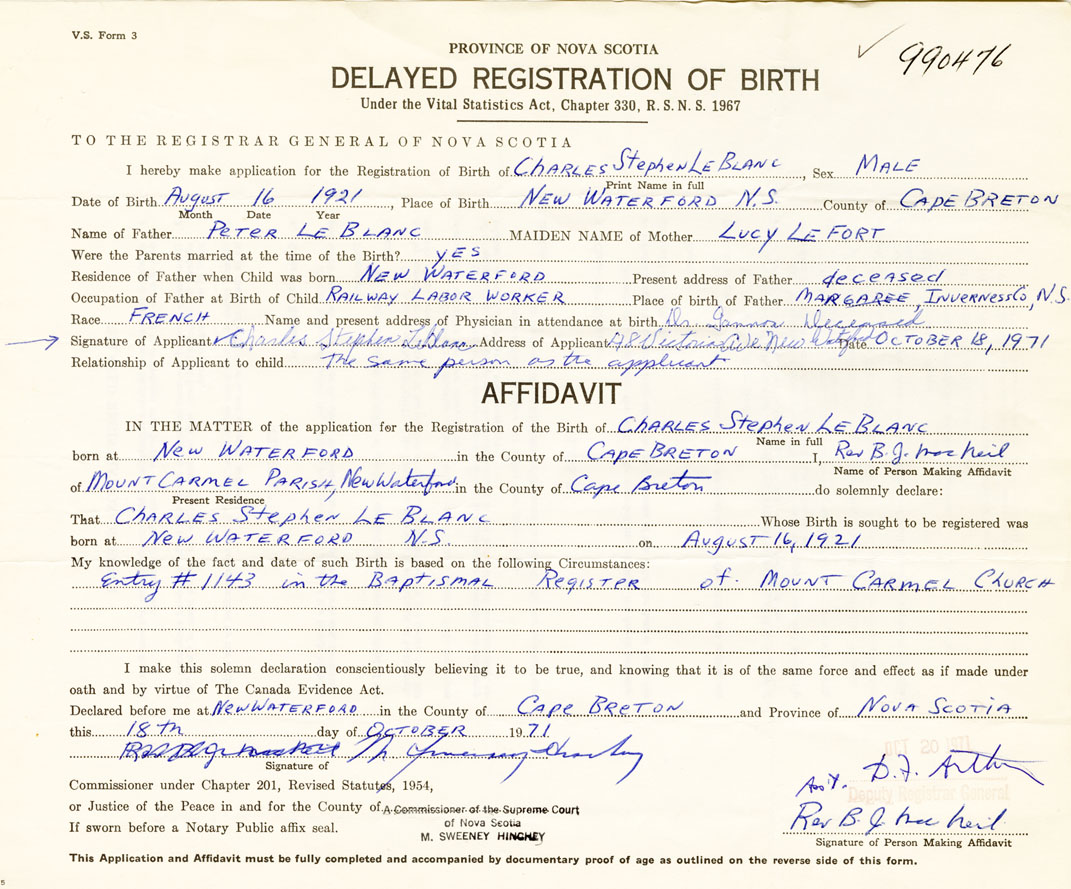 V.S. Form 3
990476
PROVINCE OF NOVA SCOTIA
DELAYED REGISTRATION OF BIRTH
Under the Vital Statistics Act, Chapter 330, R.S.N.S. 1967
TO THE REGISTRAR GENERAL OF NOVA SCOTIA
I hereby make application for the Registration of Birth of CHARLES Stephen LE BLANC, Sex MALE
Print Name in full
Date of Birth August 16 1921, Place of Birth NEW WATERFORD N.S. County of CAPE BRETON
Month Date Year
Name of Father PETER LE BLANC MAIDEN NAME of Mother LUCY LE FORT
Were the Parents married at the time of the Birth? YES
Residence of Father when Child was born NEW WATERFORD Present address of Father deceased
Occupation of Father at Birth of Child RAILWAY LABOR WORKER Place of birth of Father MARGAREE, INVERNESS Co, N.S.
Race FRENCH Name and present address of Physician in attendance at birth Dr. Deceased
Signature of Applicant Charles Stephen LeBlanc Address of Applicant Victoria New Date OCTOBER 18, 1971
Relationship of Applicant to child The same person as the applicant
AFFIDAVIT
IN THE MATTER of the application for the Registration of the Birth of CHARLES STEPHEN LE BLANC
Name in full
born at NEW WATERFORD in the County of CAPE BRETON I, Rev B. J. Mac Neil
Name of Person Making Affidavit
of MOUNT CARMEL PARISH, New Waterford in the County of Cape Breton do solemnly declare:
Present Residence
That CHARLES Stephen LE BLANC Whose Birth is sought to be registered was
born at NEW WATERFORD N.S. on August 16, 1921
My knowledge of the fact and date of such Birth is based on the following Circumstances:
Entry # 1143 in the BAPTISMAL REGISTER of MOUNT CARMEL CHURCH
I make this solemn declaration conscientiously believing it to be true, and knowing that it is of the same force and effect as if made under
oath and by virtue of The Canada Evidence Act.
Declared before me at NEW WATERFORD in the County of CAPE BRETON and Province of NOVA SCOTIA
this 18th day of OCTOBER 1971
OCT 20 1971
Signature of
Commissioner under Chapter 201, Revised Statutes, 1954,
Deputy Registrar General
or Justice of the Peace in and for the County of A Commissioner of the Supreme Court
of Nova Scotia
Rev B. J. Mac Neil
If sworn before a Notary Public affix seal.
M. SWEENEY HINCHEY
Signature of Person Making Affidavit
This Application and Affidavit must be fully completed and accompanied by documentary proof of age as outlined on the reverse side of this form.
5